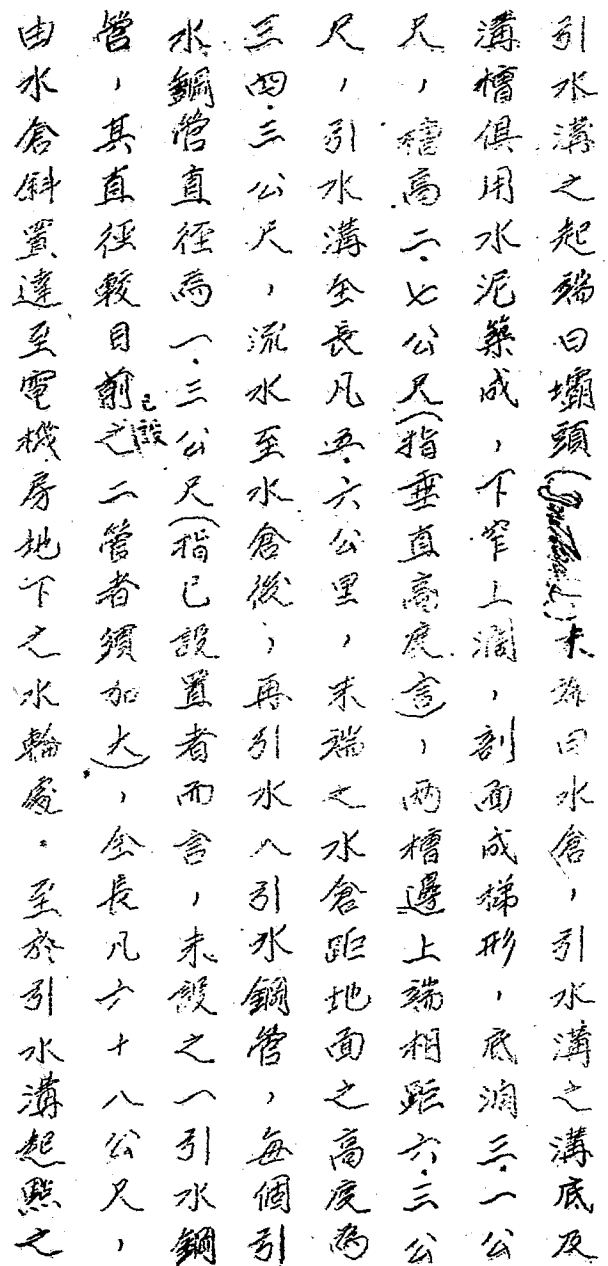 引水溝之起端曰壩頭末端曰水倉，引水溝之溝底及
溝槽俱用水泥築成，下窄上濶，剖面成梯形，底濶三．一公
尺，槽高二．七公尺（指垂直高度言），兩槽邊上端相距六．三公
尺，引水溝全長凡五．六公里，末端之水倉距地面之高度為
三四．三公尺，流水至水倉後，再引水入引水鋼管，每個引
水鋼管直徑為一．三公尺（指已設置者而言，未設之一引水鋼
管，其直徑較目前已設之二管者須加大），全長凡六十八公尺，
由水倉斜置達至電機房地下之水輪處．至於引水溝起點之